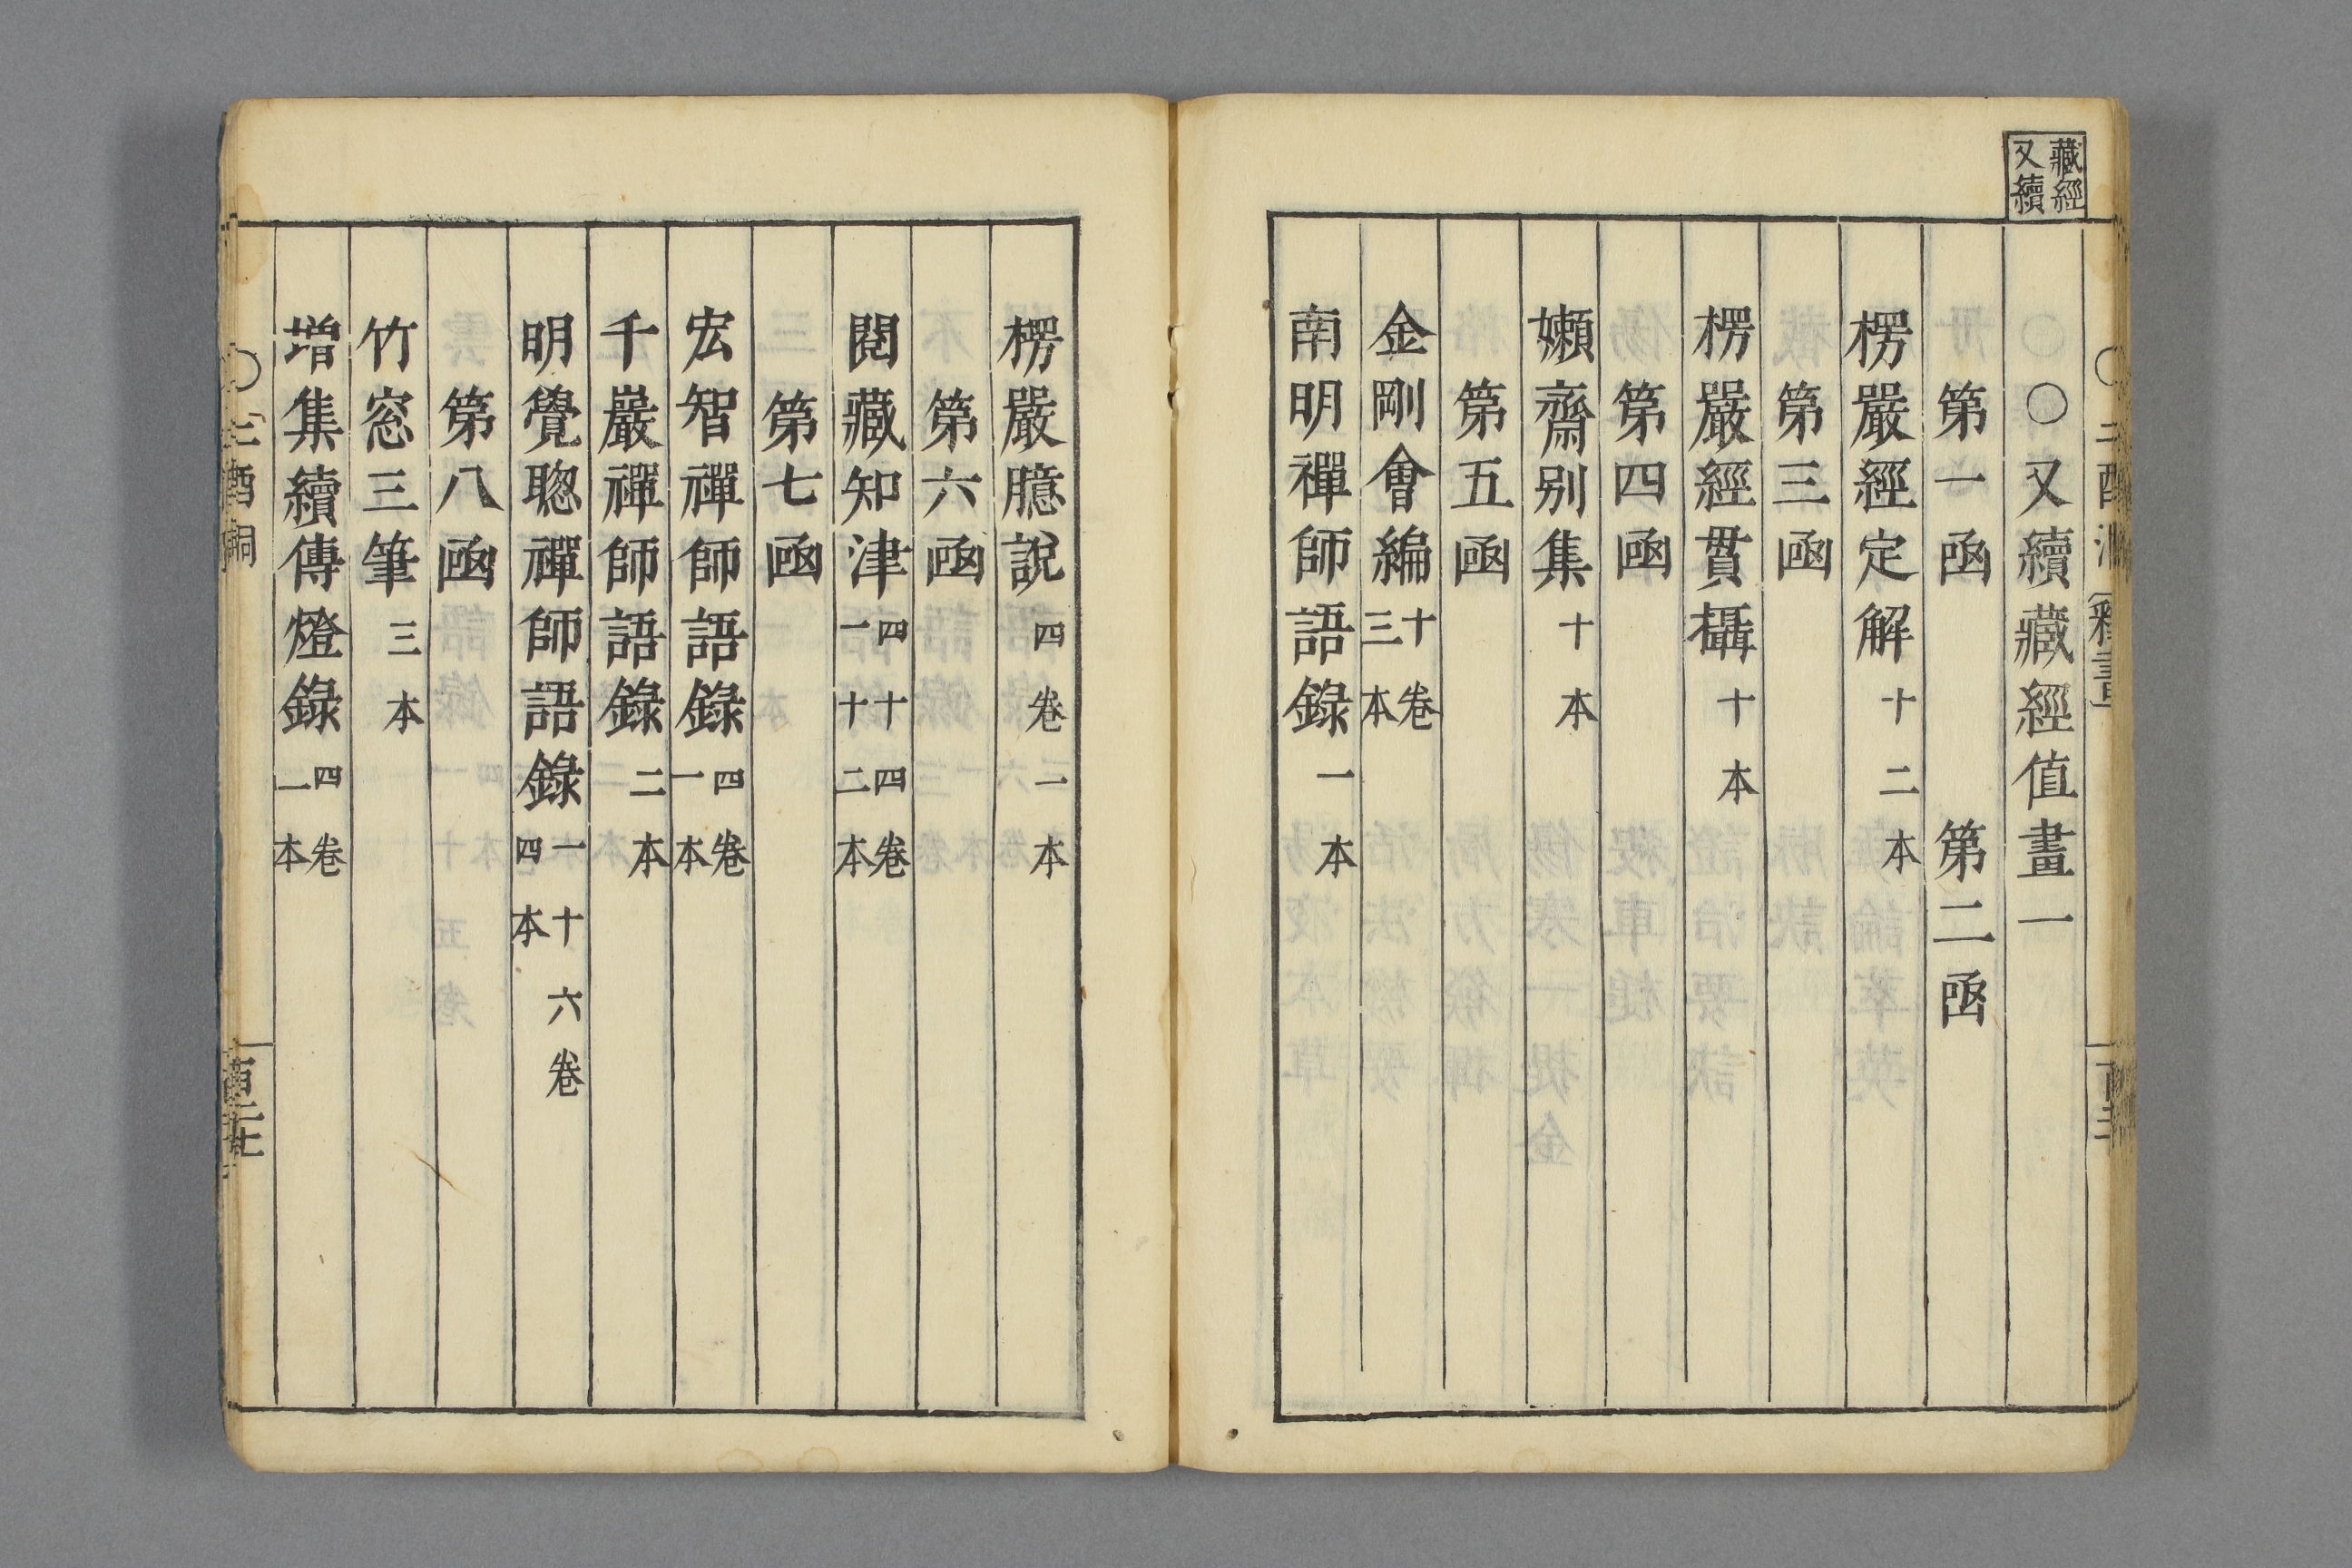 藏經
又續
○又續藏經值畫一
第一函　第二函
楞嚴經定解十二本
第三函
楞嚴經貫攝十本
第四函
嬾齋別集十本
第五函
金剛會編十卷三本
南明禪師語錄一本
楞嚴臆說四卷一本
第六函
閱藏知津四十四卷一十二本
第七函
宏智禪師語錄四卷一本
千巖禪師語錄二本
明覺聰禪師語錄一十六卷四本
第八函
竹窓三筆三本
增集續傳燈錄四卷一本